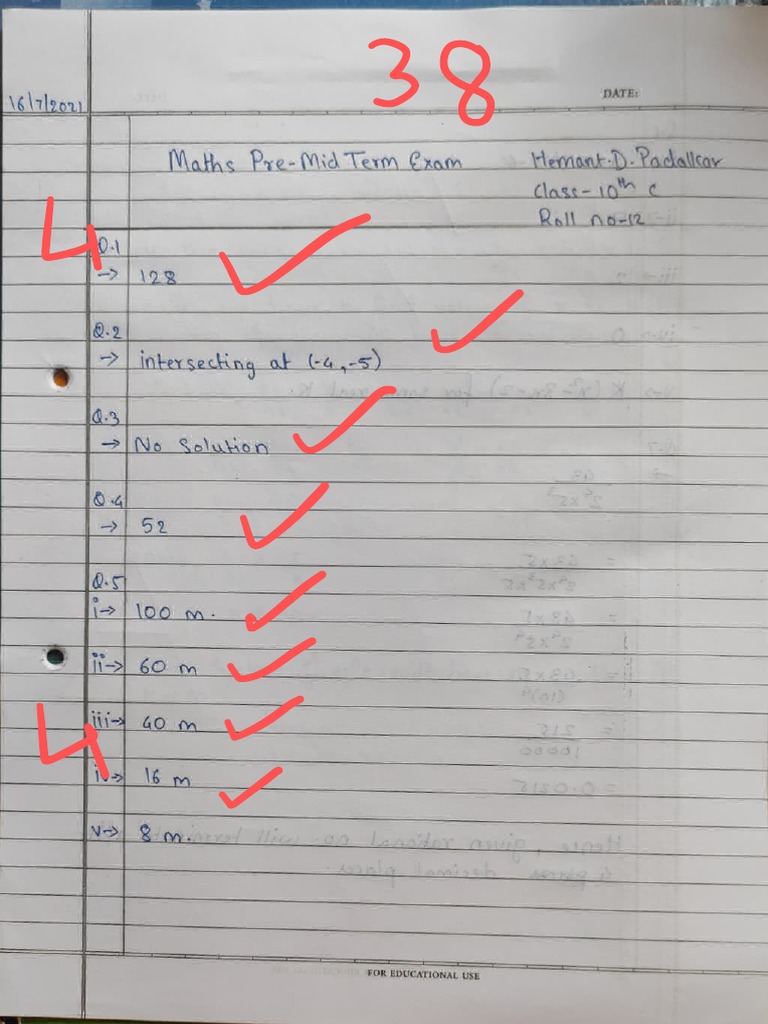 38
DATE:
16/7/2021
Maths Pre-Mid Term Exam
Hemant.D.Padalkar
Class-10th C
Roll no-12
4
Q.1
→ 128
Q.2
→ intersecting at (-4,-5)
Q.3
→ No Solution
Q.4
→ 52
Q.5
i→ 100 m.
ii→ 60 m
4
iii→ 40 m
iv→ 16 m
v→ 8 m.
FOR EDUCATIONAL USE